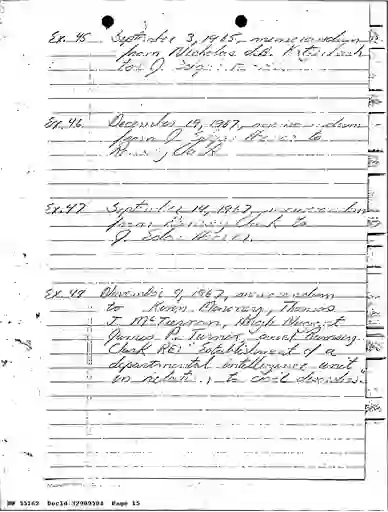 Ex. 45 September 3, 1965, memorandum
from Nicholas deB. Katzenbach
to J. Edgar
Ex. 46 December 19, 1967, memorandum
from J. Edgar Hoover to
Clark
Ex. 47 September 14, 1967, memorandum
from Ramsey Clark to
J. Edgar Hoover.
Ex. 48 November 9, 1967, memorandum
to Kevin Maroney, Thomas
J. McTiernan, Hugh Nugent
James P. Turner, from Ramsey
Clark RE: Establishment of a
departmental intelligence unit
in relation to civil disorders.
NW 55162 DocId:32989504 Page 15